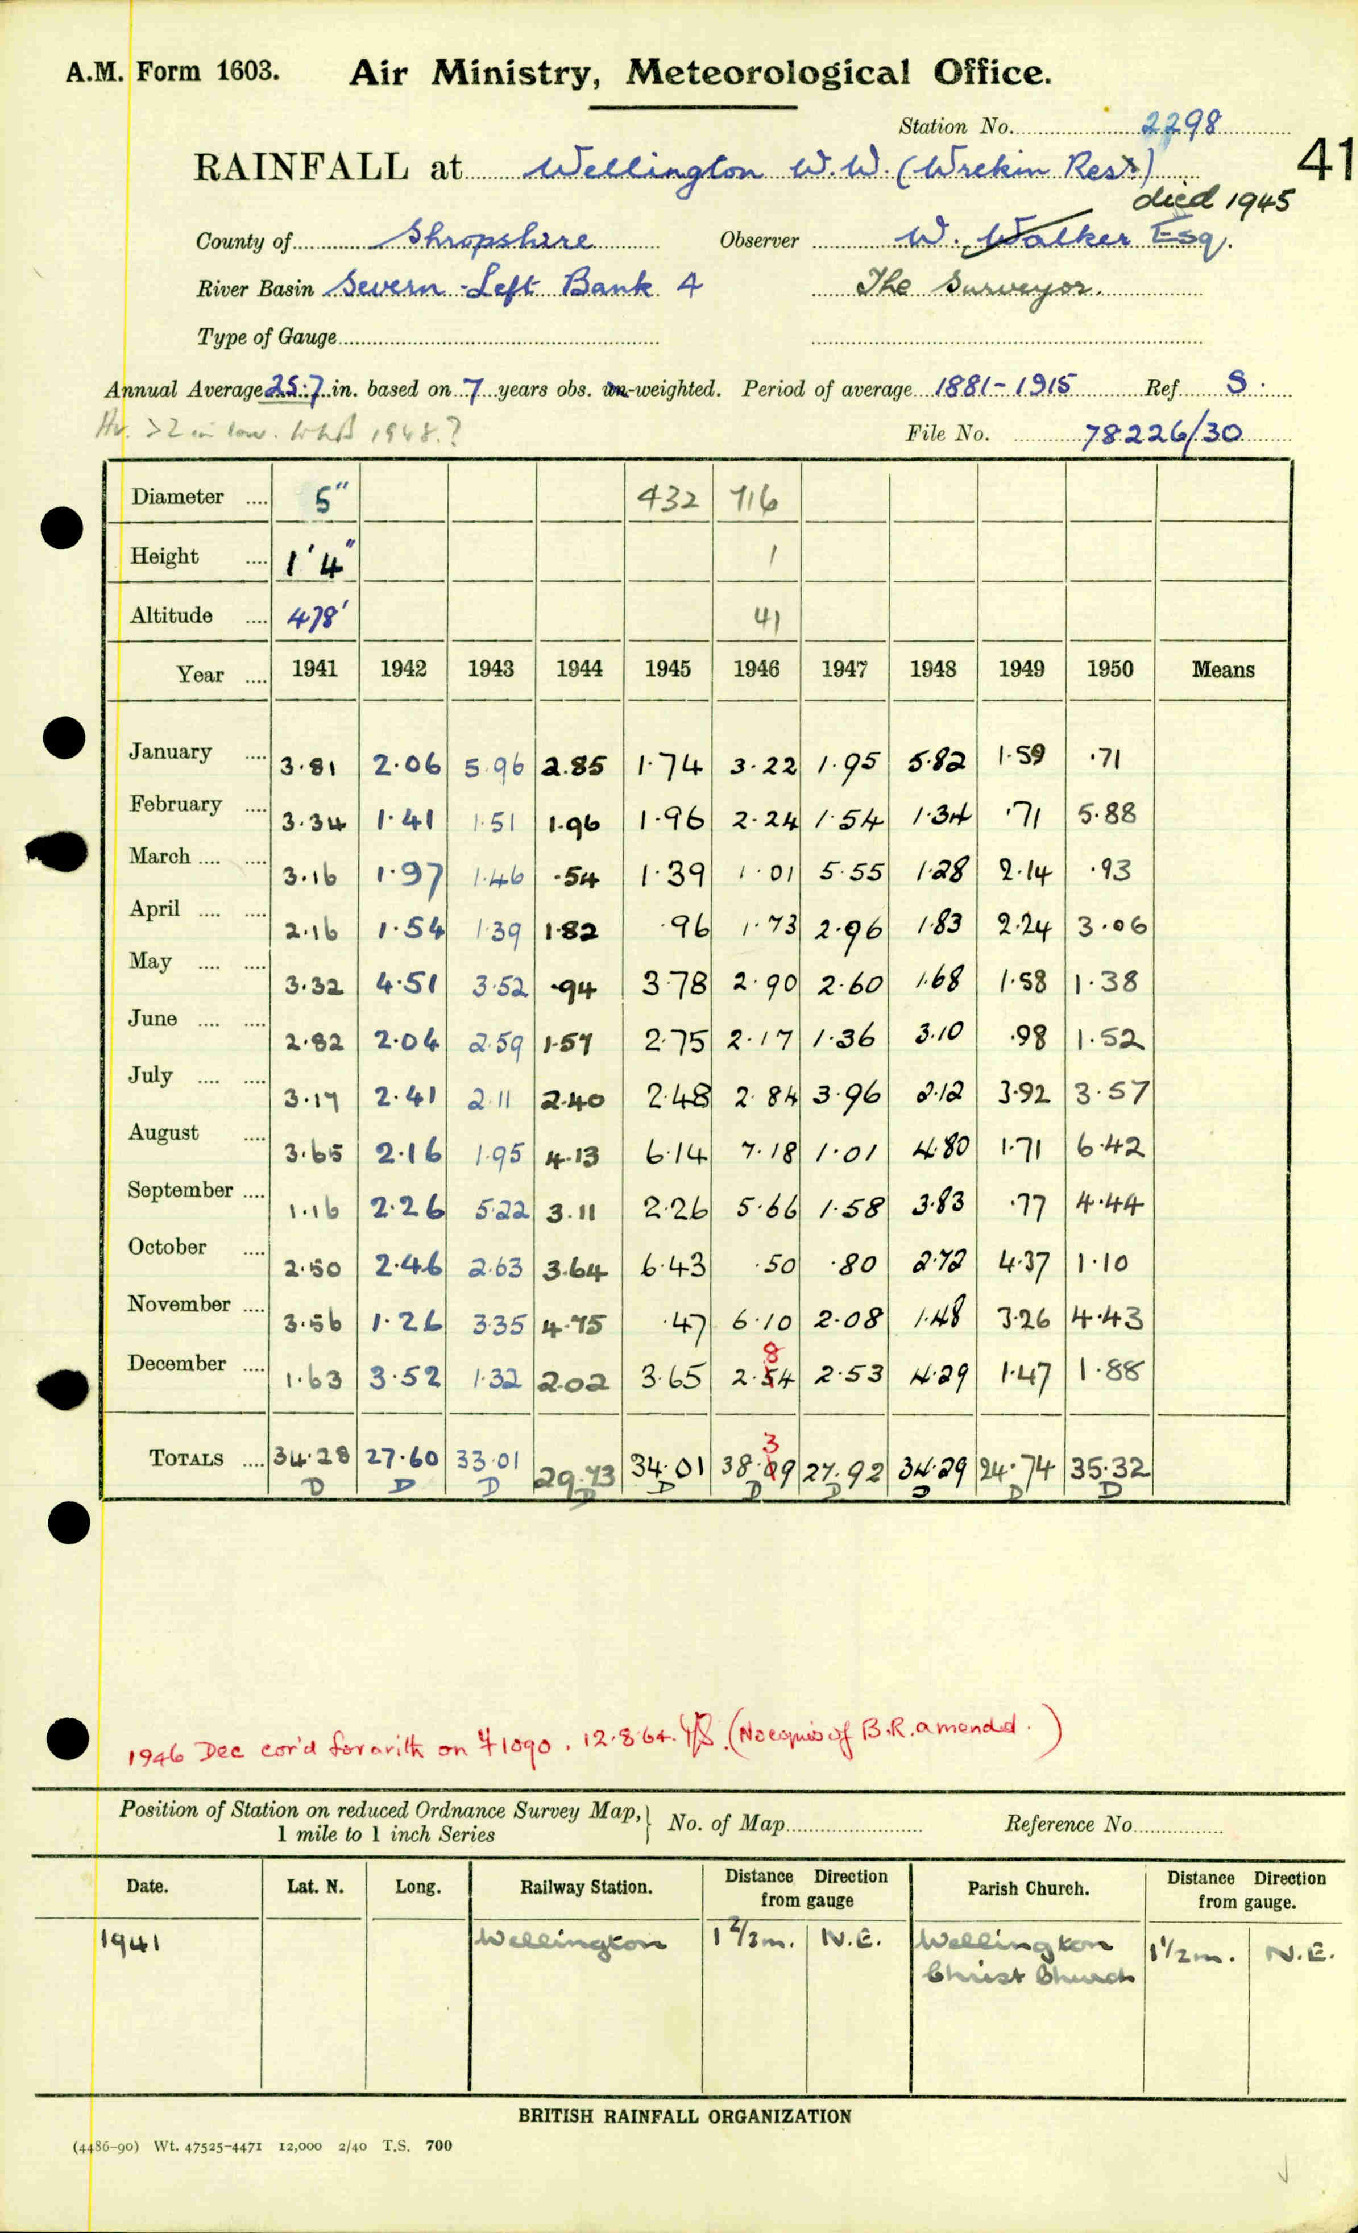 A.M. Form 1603. Air Ministry, Meteorological Office.
Station No. 2298
RAINFALL at Wellington W.W. (Wrekin Resr) 41
died 1945
County of Shropshire Observer W. Walker Esq.
River Basin Severn - Left Bank 4 The Surveyor.
Type of Gauge
Annual Average 25.7 in. based on 7 years obs. un-weighted. Period of average 1881-1915 Ref S.
1948.? File No. 78226/30
Diameter .... 5" 432 716
Height .... 1'4" 1
Altitude .... 478' 41
Year .... 1941 1942 1943 1944 1945 1946 1947 1948 1949 1950 Means
January .... 3.81 2.06 5.96 2.85 1.74 3.22 1.95 5.82 1.59 .71
February .... 3.34 1.41 1.51 1.96 1.96 2.24 1.54 1.34 .71 5.88
March .... .... 3.16 1.97 1.46 .54 1.39 1.01 5.55 1.28 2.14 .93
April .... .... 2.16 1.54 1.39 1.82 .96 1.73 2.96 1.83 2.24 3.06
May .... .... 3.32 4.51 3.52 .94 3.78 2.90 2.60 1.68 1.58 1.38
June .... .... 2.82 2.04 2.59 1.57 2.75 2.17 1.36 3.10 .98 1.52
July .... .... 3.17 2.41 2.11 2.40 2.48 2.84 3.96 2.12 3.92 3.57
August .... 3.65 2.16 1.95 4.13 6.14 7.18 1.01 4.80 1.71 6.42
September .... 1.16 2.26 5.22 3.11 2.26 5.66 1.58 3.83 .77 4.44
October .... 2.50 2.46 2.63 3.64 6.43 .50 .80 2.72 4.37 1.10
November .... 3.56 1.26 3.35 4.75 .47 6.10 2.08 1.48 3.26 4.43
8
December .... 1.63 3.52 1.32 2.02 3.65 2.54 2.53 4.29 1.47 1.88
3
TOTALS .... 34.28 27.60 33.01 29.73 34.01 38.09 27.92 34.29 24.74 35.32
D D D D D D D D D D
1946 Dec cor'd for arith on 1090. 12.8.64. (No copies of B.R. amended.)
Position of Station on reduced Ordnance Survey Map, No. of Map Reference No.
1 mile to 1 inch Series
Date. Lat. N. Long. Railway Station. Distance Direction from gauge Parish Church. Distance Direction from gauge.
1941 Wellington 1 2/3 m. N.E. Wellington 1 1/2 m. N.E.
Christ Church
BRITISH RAINFALL ORGANIZATION
(4486-90) Wt. 47525-4471 12,000 2/40 T.S. 700